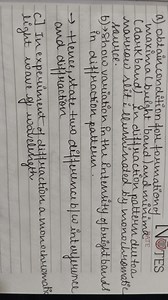 NOTES
a) obtain condition for formation of
maxima (bright band) and minima
(dark band) in diffraction pattern due to a
narrow slit illuminated by monochromatic
source.
b) show variation in the intensity of bright bands
in diffraction pattern.
→ Hence state two difference b/w interference
and diffraction
c] In experiment of diffraction a monochromatic
light wave of wavelength